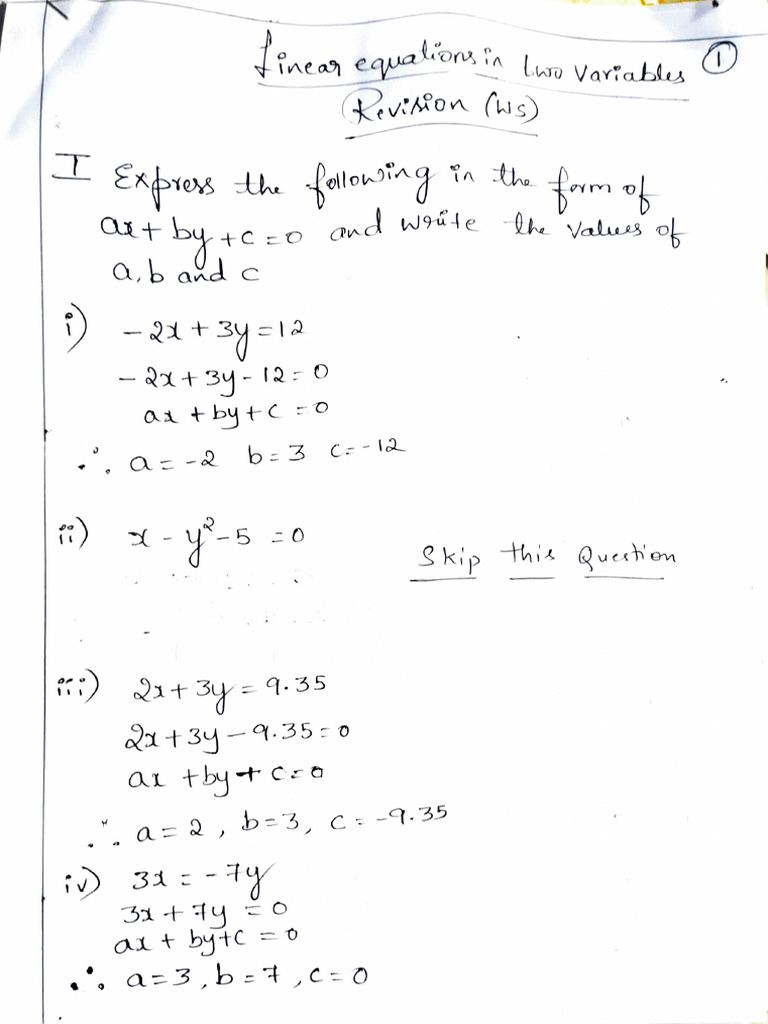 Linear equations in two variables ①
Revision (WS)
I Express the following in the form of
ax + by + c = 0 and write the values of
a, b and c
i) - 2x + 3y = 12
- 2x + 3y - 12 = 0
ax + by + c = 0
∴ a = -2 b = 3 c = -12
ii) x - y² - 5 = 0
Skip this Question
iii) 2x + 3y = 9.35
2x + 3y - 9.35 = 0
ax + by + c = 0
∴ a = 2, b = 3, c = -9.35
iv) 3x = -7y
3x + 7y = 0
ax + by + c = 0
∴ a = 3, b = 7, c = 0